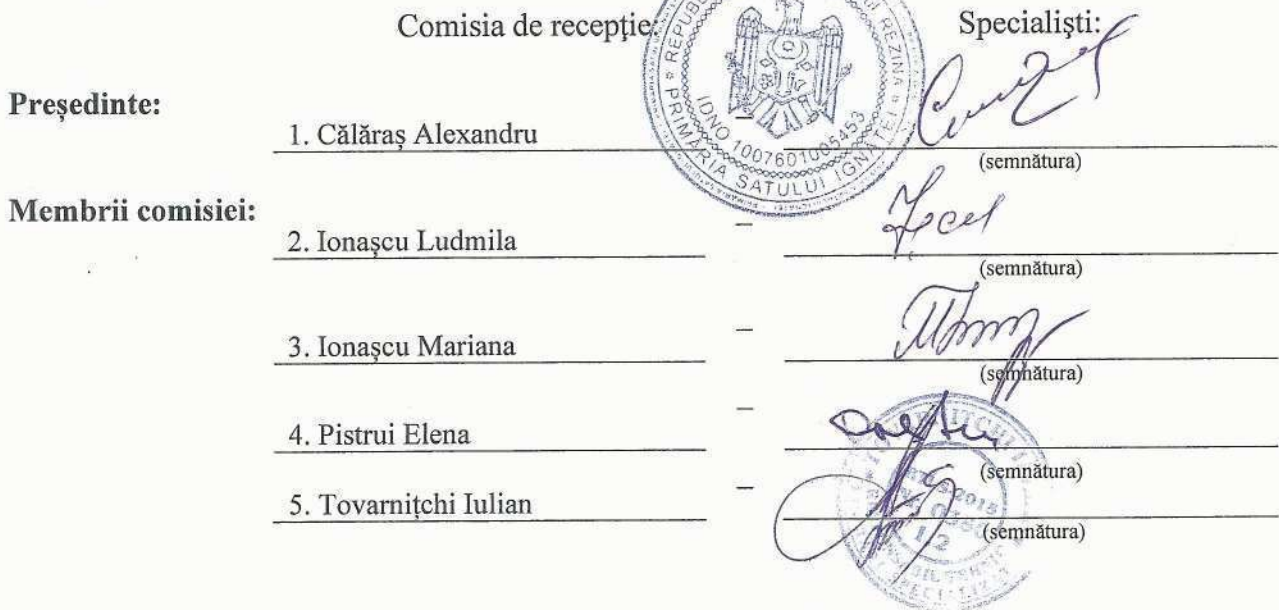 Comisia de recepție: Specialiști:
Președinte:
1. Călăraș Alexandru –
(semnătura)
Membrii comisiei:
2. Ionașcu Ludmila –
(semnătura)
3. Ionașcu Mariana –
(semnătura)
4. Pistrui Elena –
(semnătura)
5. Tovarnițchi Iulian –
(semnătura)
REZINA
IDNO 1007601005453
PRIMĂRIA SATULUI IGNĂȚEI
2015